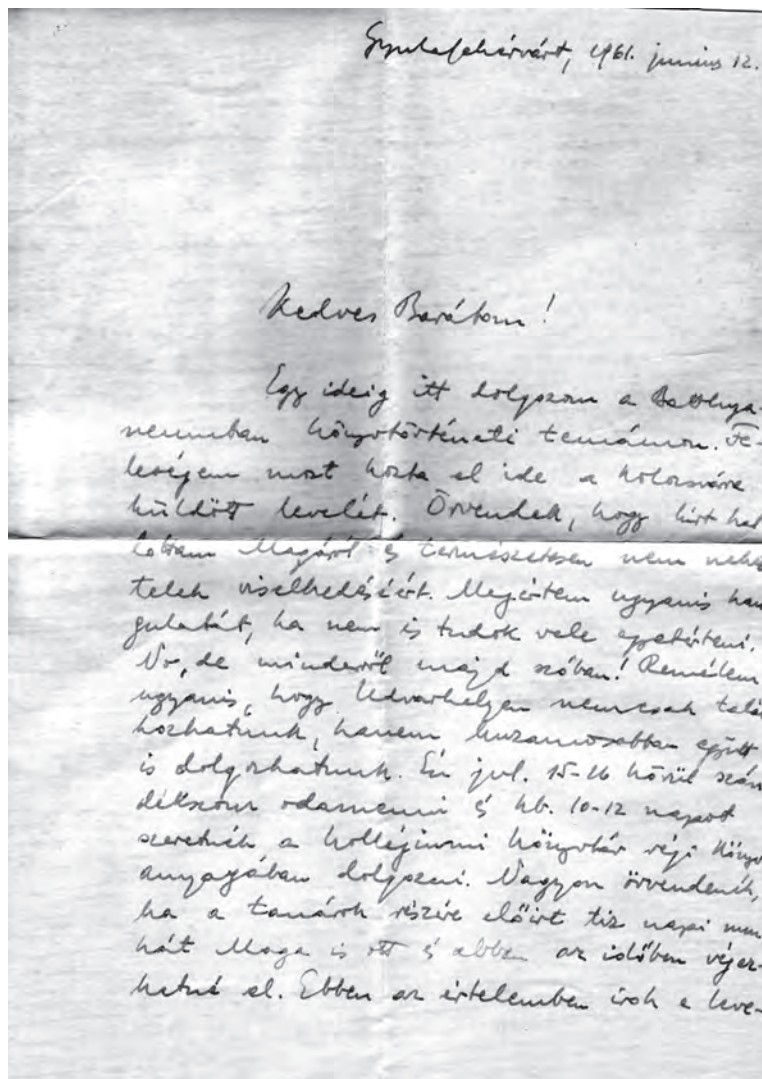 Gyulafehérvárt, 1961. junius 12.
Kedves Barátom!
Egy ideig itt dolgozom a Batthya-
neumban könyvtörténeti témámon. Fe-
leségem most hozta el ide a Kolozsvárra
küldött levelét. Örvendek, hogy hirt hal
lottam Magáról és természetesen nem nehez
telek viselkedéséért. Megértem ugyanis han
gulatát, ha nem is tudok vele egyetérteni.
No, de minderről majd szóban! Remélem
ugyanis, hogy Udvarhelyen nemcsak talál
kozhatunk, hanem huzamosabban együtt
is dolgozhatunk. Én jul. 15-16 körül szán
dékszom odamenni és kb. 10-12 napot
szeretnék a kollégiumi könyvtár régi könyv
anyagában dolgozni. Nagyon örvendenék,
ha a tanárok részére előirt tiz napi mun
kát Maga is ott és ebben az időben végez-
hetné el. Ebben az értelemben irok a leve-